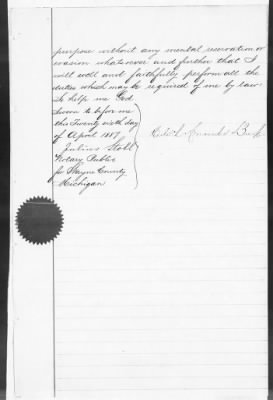 purpose without any mental reservation or
evasion whatsoever and further that I
will well and faithfully perform all the
duties which may be required of me by law
So help me God
Sworn to before me
this Twenty sixth day
of April 1887
Julius Stoll
Notary Public
for Wayne County
Michigan